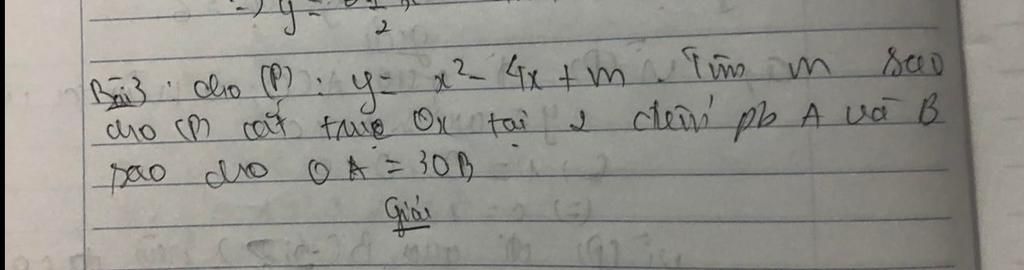 =) y =
2
Bài 3 : cho (P) : y = x² - 4x + m . Tìm m sao
cho (P) cắt trục Ox tại 2 điểm pb A và B
sao cho OA = 3OB
Giải